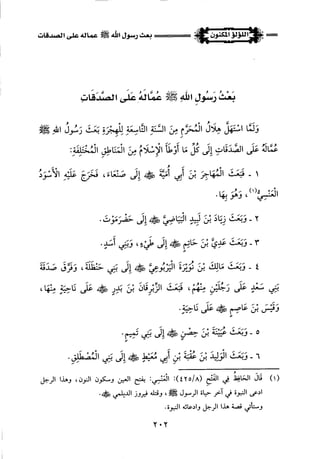 بعث رسول الله ﷺ عماله على الصدقات اللؤلؤ المكنون
بَعْثُ رَسُولِ اللهِ ﷺ عُمَّالَهُ عَلَى الصَّدَقَاتِ
وَلَمَّا اسْتَهَلَّ هِلَالُ الْمُحَرَّمِ مِنَ السَّنَةِ التَّاسِعَةِ لِلْهِجْرَةِ بَعَثَ رَسُولُ اللهِ ﷺ
عُمَّالَهُ عَلَى الصَّدَقَاتِ إِلَى كُلِّ مَا أَوْطَأَ الْإِسْلَامُ مِنَ الْمَنَاطِقِ الْمُخْتَلِفَةِ:
١ - فَبَعَثَ الْمُهَاجِرَ بْنَ أَبِي أُمَيَّةَ ﷺ إِلَى صَنْعَاءَ، فَخَرَجَ عَلَيْهِ الْأَسْوَدُ
الْعَنْسِيُّ(١)، وَهُوَ بِهَا.
٢ - وَبَعَثَ زِيَادَ بْنَ لَبِيدٍ الْبَيَاضِيَّ ﷺ إِلَى حَضْرَمَوْتَ.
٣ - وَبَعَثَ عَدِيَّ بْنَ حَاتِمٍ ﷺ إِلَى طَيِّءٍ، وَبَنِي أَسَدٍ.
٤ - وَبَعَثَ مَالِكَ بْنَ نُوَيْرَةَ الْيَرْبُوعِيَّ ﷺ إِلَى بَنِي حَنْظَلَةَ، وَفَرَّقَ صَدَقَةَ
بَنِي سَعْدٍ عَلَى رَجُلَيْنِ مِنْهُمْ، فَبَعَثَ الزِّبْرِقَانَ بْنَ بَدْرٍ ﷺ عَلَى نَاحِيَةٍ مِنْهَا،
وَقَيْسَ بْنَ عَاصِمٍ ﷺ عَلَى نَاحِيَةٍ.
٥ - وَبَعَثَ عُيَيْنَةَ بْنَ حِصْنٍ ﷺ إِلَى بَنِي تَمِيمٍ.
٦ - وَبَعَثَ الْوَلِيدَ بْنَ عُقْبَةَ بْنِ أَبِي مُعَيْطٍ ﷺ إِلَى بَنِي الْمُصْطَلِقِ.
(١) قال الحافظ في الفتح (٤٢٥/٨): العَنْسِي: بفتح العين وسكون النون، وهذا الرجل
ادعى النبوة في آخر حياة الرسول ﷺ، وقتله فيروز الديلمي ﷺ.
وستأتي قصة هذا الرجل وادعائه النبوة.
٢٠٢